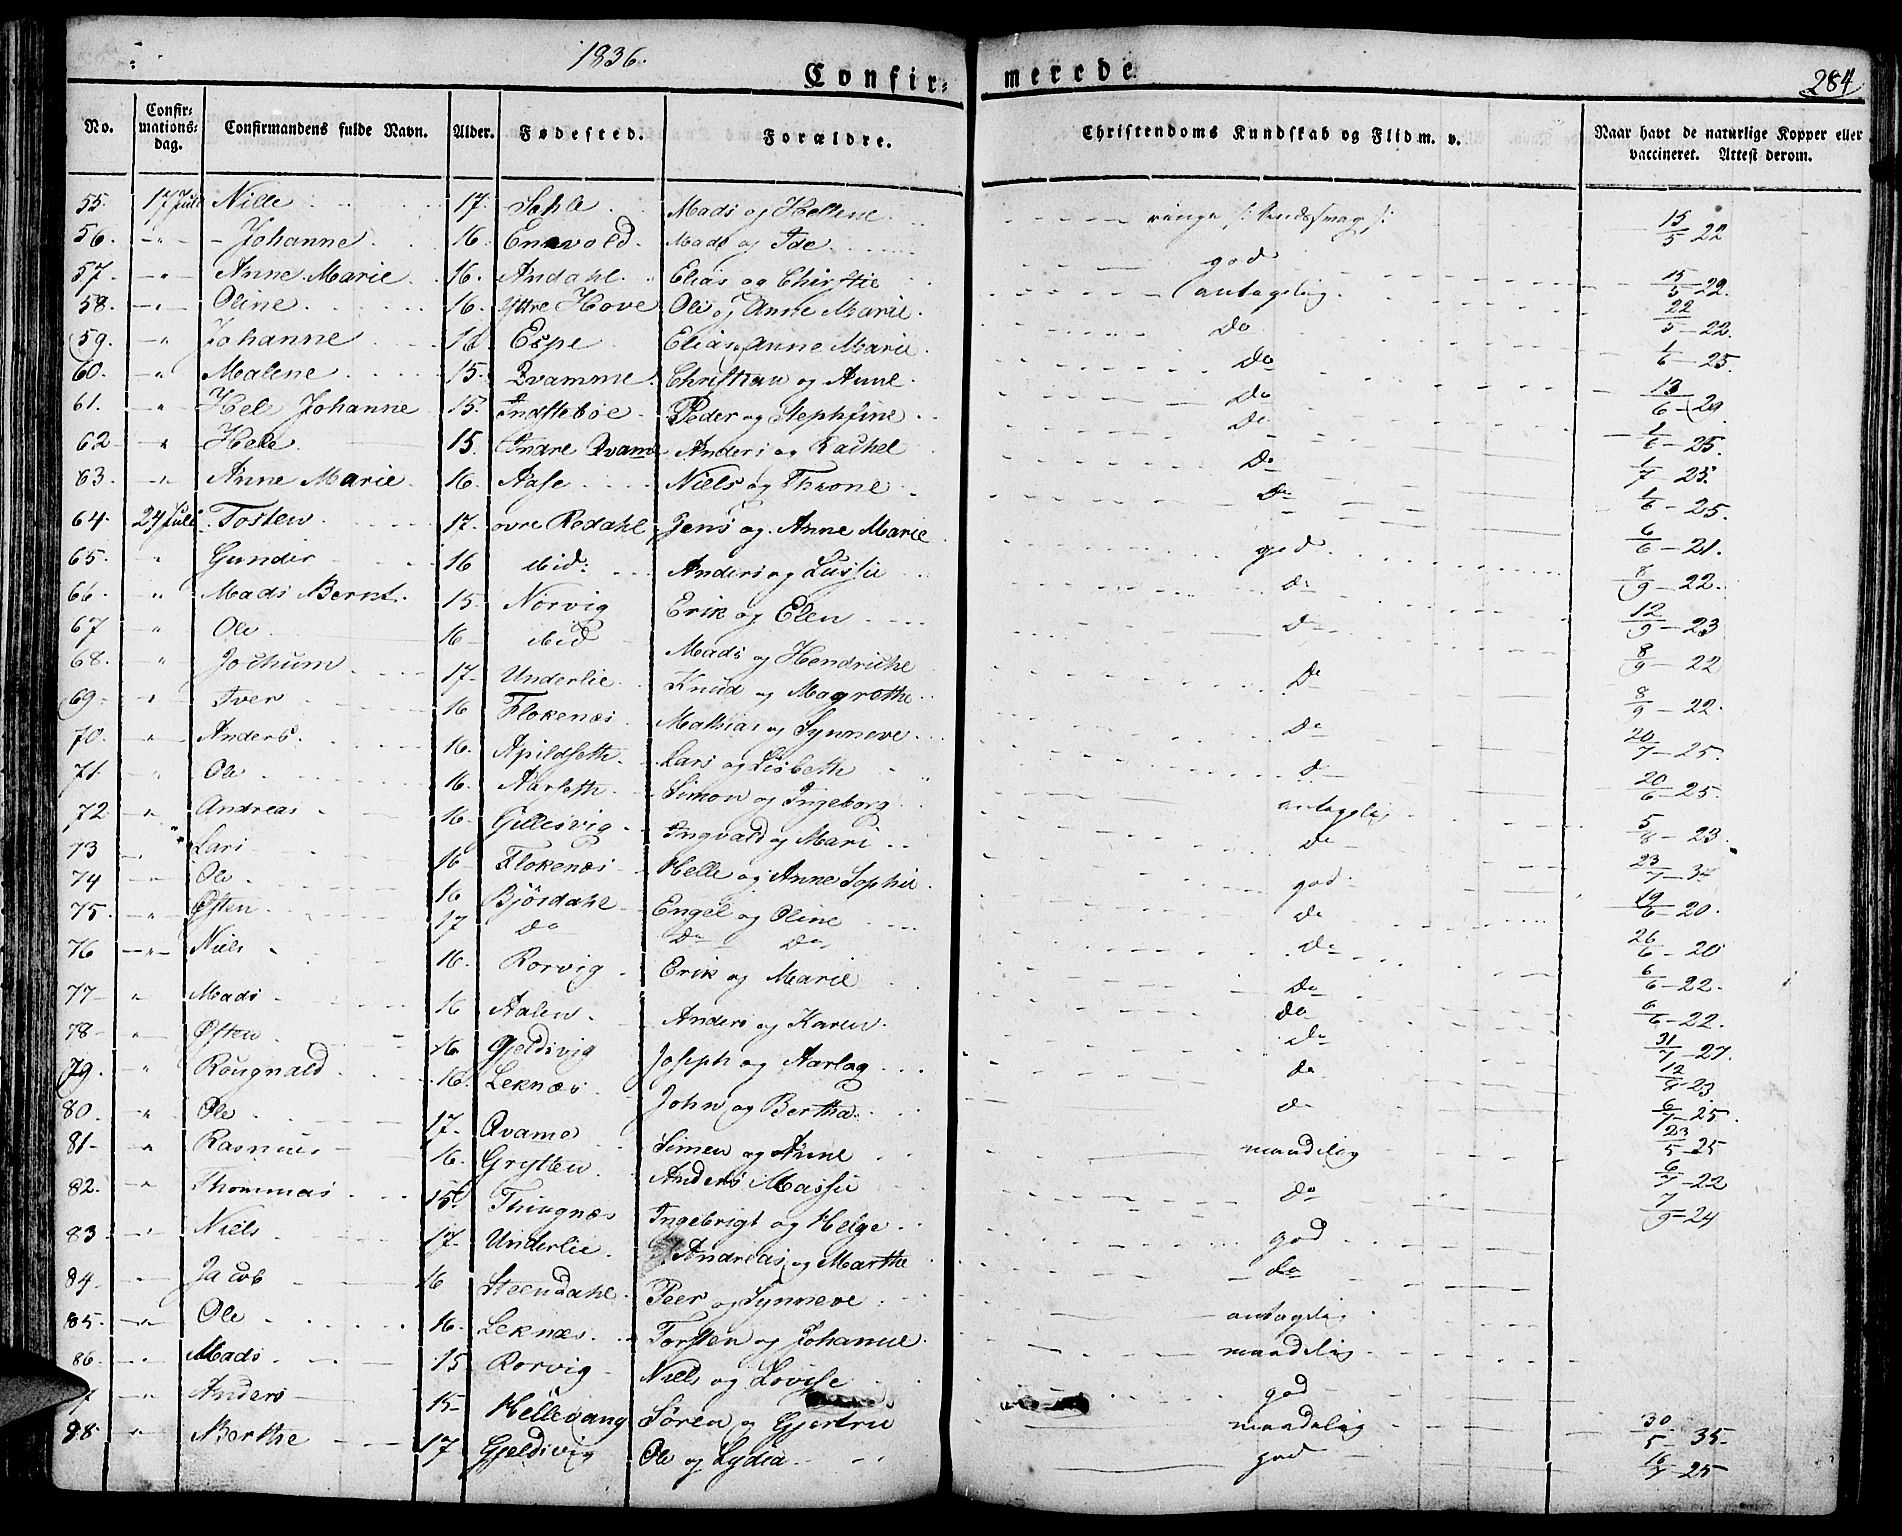 1836.
Confir= merede 284
No. Confirmations=dag. Confirmandens fulde Navn. Alder. Fødested. Forældre. Christendoms Kundskab og Flid m. v. Naar havt de naturlige Kopper eller vaccineret. Attest derom.
55. 17 Juli Nille 17. Sahle Mads og Hellene ringe 15/5 22
56. - " - Johanne 16. Endvold Mads og Ide god
57. - " Anne Marie 16. Andahl Elias og Chirstie antagelig 15/5 22.
58. - " Oline 16. Yttre Hove Ole og Anne Marie Do 22/5 22.
59. - " Johanne 16 Espe Elias og Anne Marie Do 1/6 - 25.
60. " Malene 15. Qvamme Christian og Anne Do 13/6 - 29
61. - " Hele Johanne 15. Indstebøe Peder og Stephfine Do
62 " Hele 15. Indre Qvame Anders og Rachel Do 1/6 - 25.
63. - " Anne Marie 16. Aase Niels og Throne Do 1/7 - 25.
64. 24 Juli Tosten 17. ovre Redahl Jens og Anne Marie god 1/6 - 25.
65. " Gunder 16 ibid: Anders og Lussie Do 6/6 - 21.
66. " Mads Bernt. 15 Norvig Erik og Elen Do 8/9 - 22.
67 " Ole 16 ibid Mads og Hendriche 12/9 - 23
68. " Jochum 17- Underlie Knud og Magrethe Do 8/9 - 22
69. " Iver 16 Flokenæs Mathias og Synneve Do 8/9 - 22.
70. " Anders. 16. Apildseth Lars og Lisbeth Do 20/7 - 25.
71. " Ole 16. Aarseth Simon og Ingeborg antagelig 20/6 - 25.
72 " Andreas 16. Gillesvig Ingvald og Mari Do 5/8 - 23.
73 " Lars 16 Flokenæs Helle og Anne Sophie god 23/7
74 " Ole 16 Bjørdahl Engel og Oline Do 19/6 - 20.
75. " Østen 17 Do Do Do Do 26/6 - 20
76 - " - Niels 16. Rorvig Erik og Marie Do 6/6 - 22.
77 - " Mads 16 Aalen Anders og Karen Do 6/6 - 22.
78- " Østen 16 Gjeldivig Joseph og Aarlag Do 31/7 - 27.
79. " Rougnald 16. Leknæs John og Bertha Do 12/9 23
80. " Ole 17- Qvame Simen og Anne Do 6/7 - 25.
81- " Rasmus 16. Grytten Anders Massie maadelig 23/5 - 25
82. " Thommas 15. Thingnæs Ingebrigt og Helge Do 6/7 - 22
83. " Niels 17- Underlie Andreas og Marthe god 7/9 = 24
84. " Jacob 16 Steendahl Peer og Synneve Do
85. - " Ole 16. Leknæs Torsten og Johanne antagelig
86. " Mads 15 Rorvig Niels og Lovise maadelig
7 " Anders 15- Hellevang Søren og Gjertru god
88. " Berthe 17 Gjeldivig Ole og Lydia maadelig 30/5 - 35-
god 16/7 25